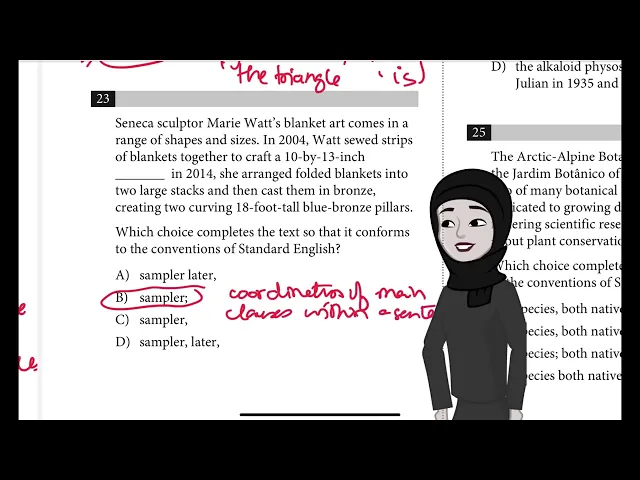 the triangle is)
D) the alkaloid physos
Julian in 1935 and
23
Seneca sculptor Marie Watt's blanket art comes in a
range of shapes and sizes. In 2004, Watt sewed strips
of blankets together to craft a 10-by-13-inch
_______ in 2014, she arranged folded blankets into
two large stacks and then cast them in bronze,
creating two curving 18-foot-tall blue-bronze pillars.
Which choice completes the text so that it conforms
to the conventions of Standard English?
A) sampler later,
B) sampler;
C) sampler,
D) sampler, later,
coordination of main
clauses within a sente
25
The Arctic-Alpine Bota
the Jardim Botânico of
p of many botanical
icated to growing d
ering scientific rese
out plant conservatio
Which choice complete
the conventions of S
species, both native
species, both native
species; both native
species both native